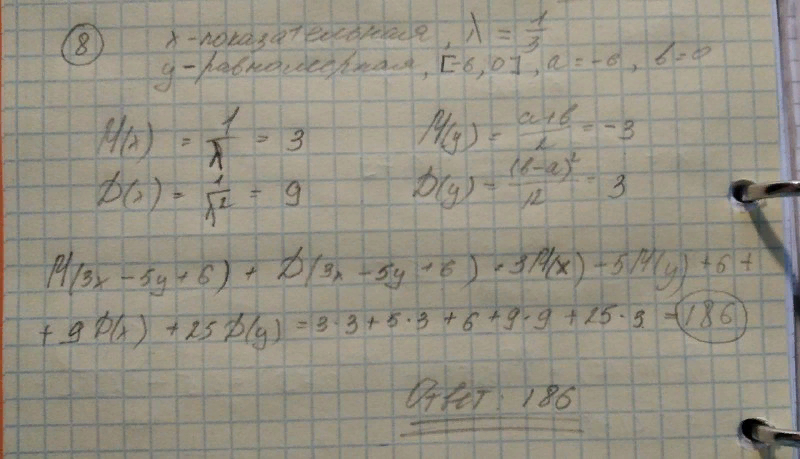 8 x - показательная, λ = 1/3
y - равномерная, [-6, 0], a = -6, b = 0
M(x) = 1/λ = 3 M(y) = (a+b)/2 = -3
D(x) = 1/λ² = 9 D(y) = (b-a)²/12 = 3
M(3x - 5y + 6) + D(3x - 5y + 6) = 3M(x) - 5M(y) + 6 +
+ 9D(x) + 25D(y) = 3·3 + 5·3 + 6 + 9·9 + 25·3 = 186
Ответ: 186